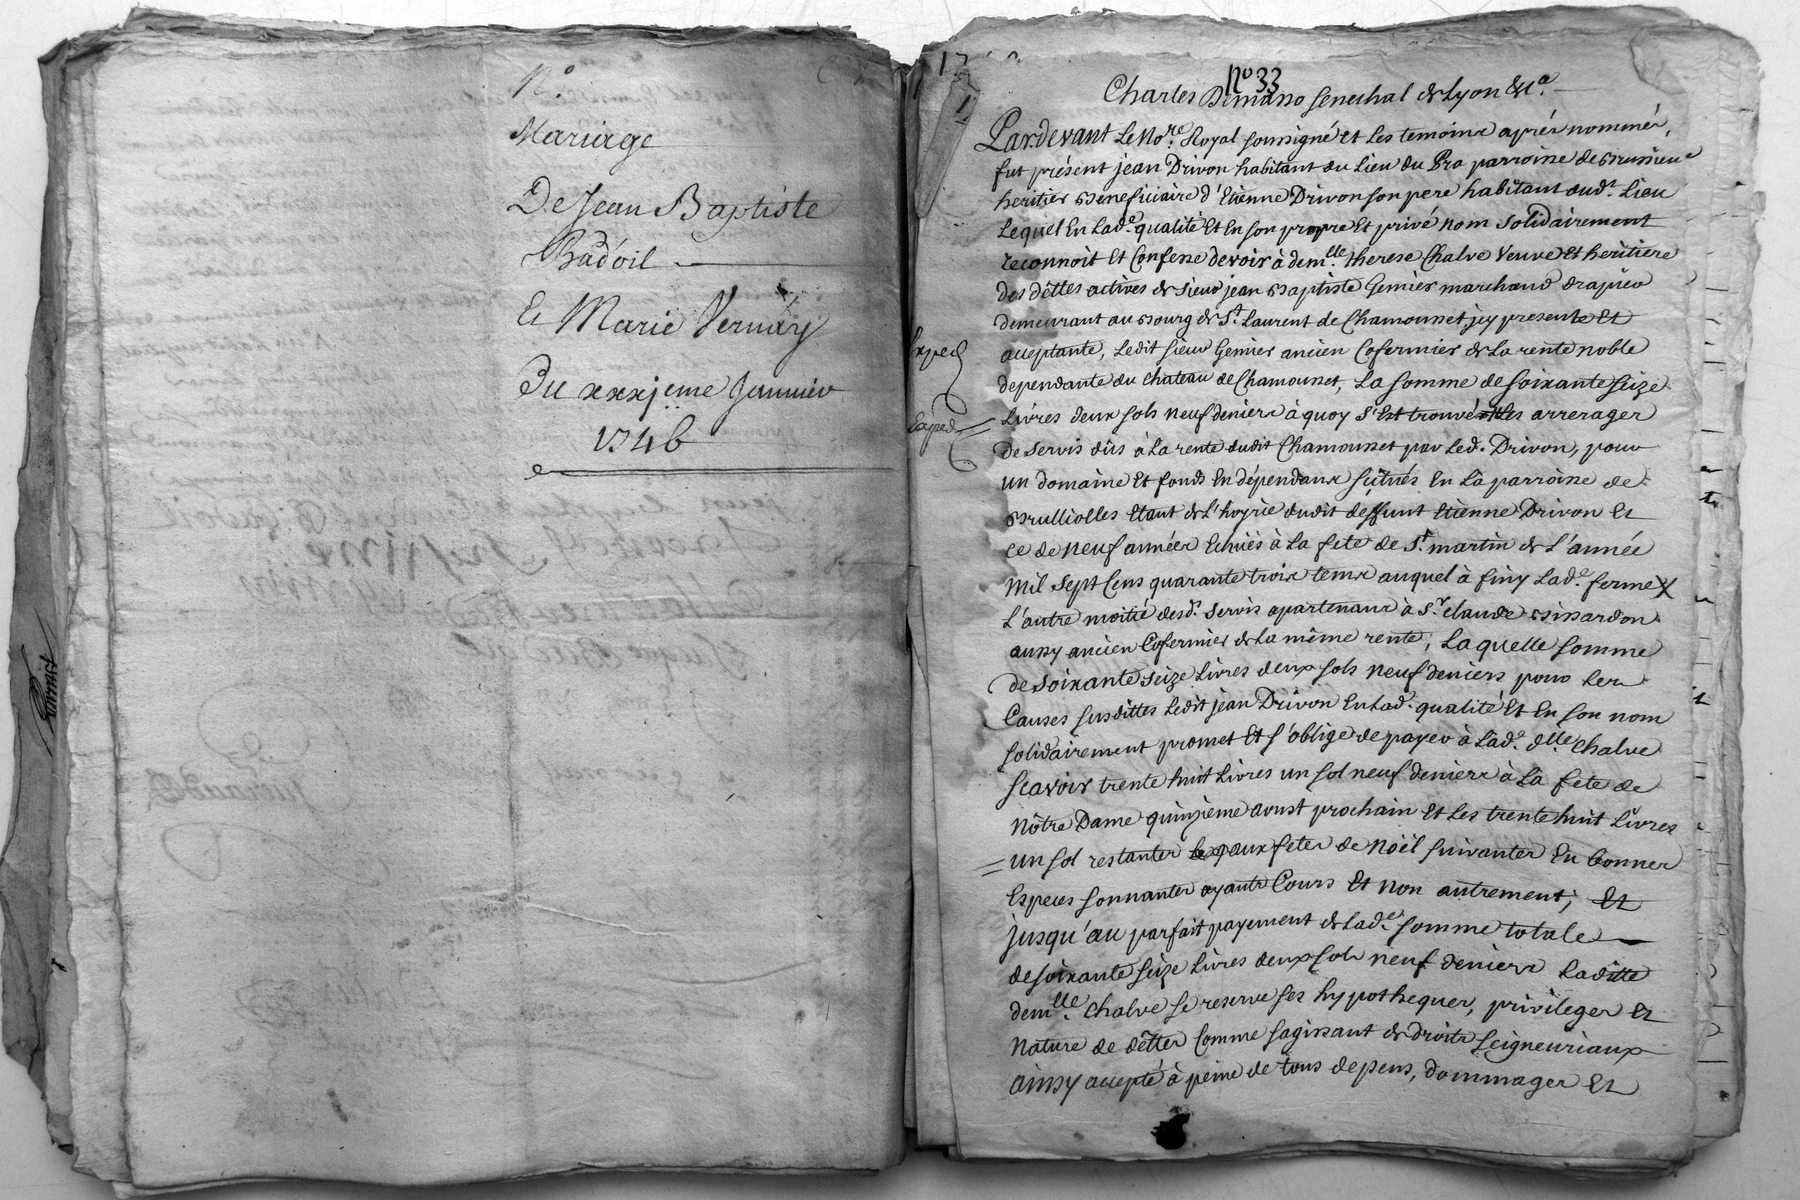 N.o
Mariage
De Jean Baptiste
Badoil
Et Marie Vernay
Du xxxjeme Janvier
1746
No 33
Charles Demasso senechal de Lyon &c.a
Pardevant Le No.re Royal soussigné et Les temoins aprés nommés,
fut présent jean Drivon habitant du Lieu du Pra parroisse de Brussieu
heritier Beneficiaire d'Etienne Drivon son pere habitant aud.t Lieu
Lequel En Lad.e qualité Et En son propre Et privé nom solidairement
reconnoit Et Confesse devoir à dem.lle therese Chalve Veuve Et heritiere
des dêttes actives de sieur jean Baptiste Gemier marchand drapier
demeurant au Bourg de S.t Laurent de Chamousset jcy presente Et
acceptante, Ledit sieur Gemier ancien Cofermier de La rente noble
dependante du chateau de Chamousset, La somme de soixante seize
Livres deux sols neuf deniers à quoy s'Est trouvé Les arrerages
de servis dûs à La rente dudit Chamousset par Led. Drivon, pour
un domaine Et fonds En dépendans situés En La parroisse de
Brulliolles Etant de L'hoyrie dudit deffunt Etienne Drivon Et
ce de neuf années Echües à La fete de S.t martin de L'année
mil sept Cens quarante trois tems auquel à finy Lad.e ferme X
L'autre moitié desd.s servis apartenant à S.r claude Bissardon
aussy ancien Cofermier de La même rente, Laquelle somme
de soixante seize Livres deux sols neuf deniers pour Les
Causes susdittes Ledit jean Drivon En Lad. qualité Et En son nom
solidairement promet Et s'oblige de payer à Lad.e d.lle Chalve
scavoir trente huit Livres un sol neuf deniers à La fete de
Nôtre Dame quinzieme aoust prochain Et Les trente huit Livres
un sol restantes aux fetes de Noël suivantes En bonnes
Especes sonnantes ayants Cours Et non autrement; Et
jusqu'au parfait payement de Lad.e somme totale
de soixante seize Livres deux sols neuf deniers Laditte
dem.lle Chalve se reserve ses hypotheques, privileges Et
nature de dêttes Comme sagissant de droits seigneuriaux
ainsy accepté à peine de tous depens, dommages Et